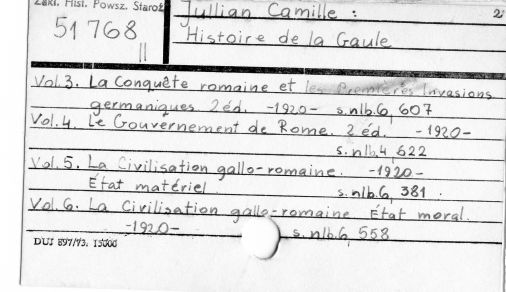 Zakł. Hist. Powsz. Staroż
51768
||
Jullian Camille : 2
Histoire de la Gaule
Vol. 3. La Conquête romaine et les Premières Invasions
germaniques 2 éd. -1920- s.nlb.6, 607
Vol. 4. Le Gouvernement de Rome. 2 éd. -1920-
s.nlb.4, 622
Vol. 5. La Civilisation gallo-romaine. -1920-
État matériel s.nlb.6, 381.
Vol. 6. La Civilisation gallo-romaine État moral.
-1920- s.nlb.6, 558
DUJ 897/73. 15000